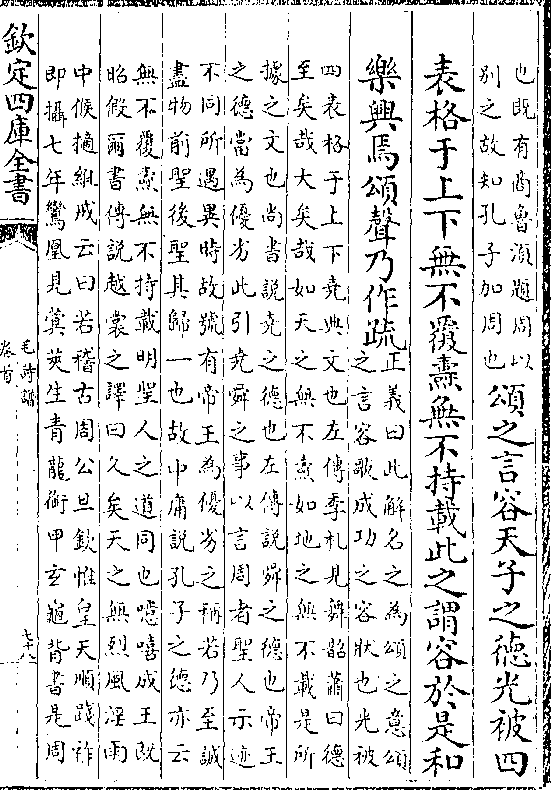 也既有商魯須題周以
別之故知孔子加周也
頌之言容天子之德光被四
表格于上下無不覆燾無不持載此之謂容於是和
樂興焉頌聲乃作疏
正義曰此解名之為頌之意頌
之言容歌成功之容狀也光被
四表格于上下堯典文也左傳季札見舞韶蕭曰德
至矣哉大矣哉如天之無不燾如地之無不載是所
據之文也尚書說堯之德也左傳說舜之德也帝王
之德當為優劣此引堯舜之事以言周者聖人示迹
不同所遇異時故號有帝王為優劣之稱若乃至誠
盡物前聖後聖其歸一也故中庸說孔子之德亦云
無不覆燾無不持載明聖人之道同也噫嘻成王既
昭假爾書傳說越裳之譯曰久矣天之無烈風淫雨
中候摘雒戒云曰若稽古周公旦欽惟皇天順踐祚
即攝七年鸞凰見蓂莢生青龍銜甲玄龜背書是周
欽定四庫全書
毛詩譜
卷首
七十八